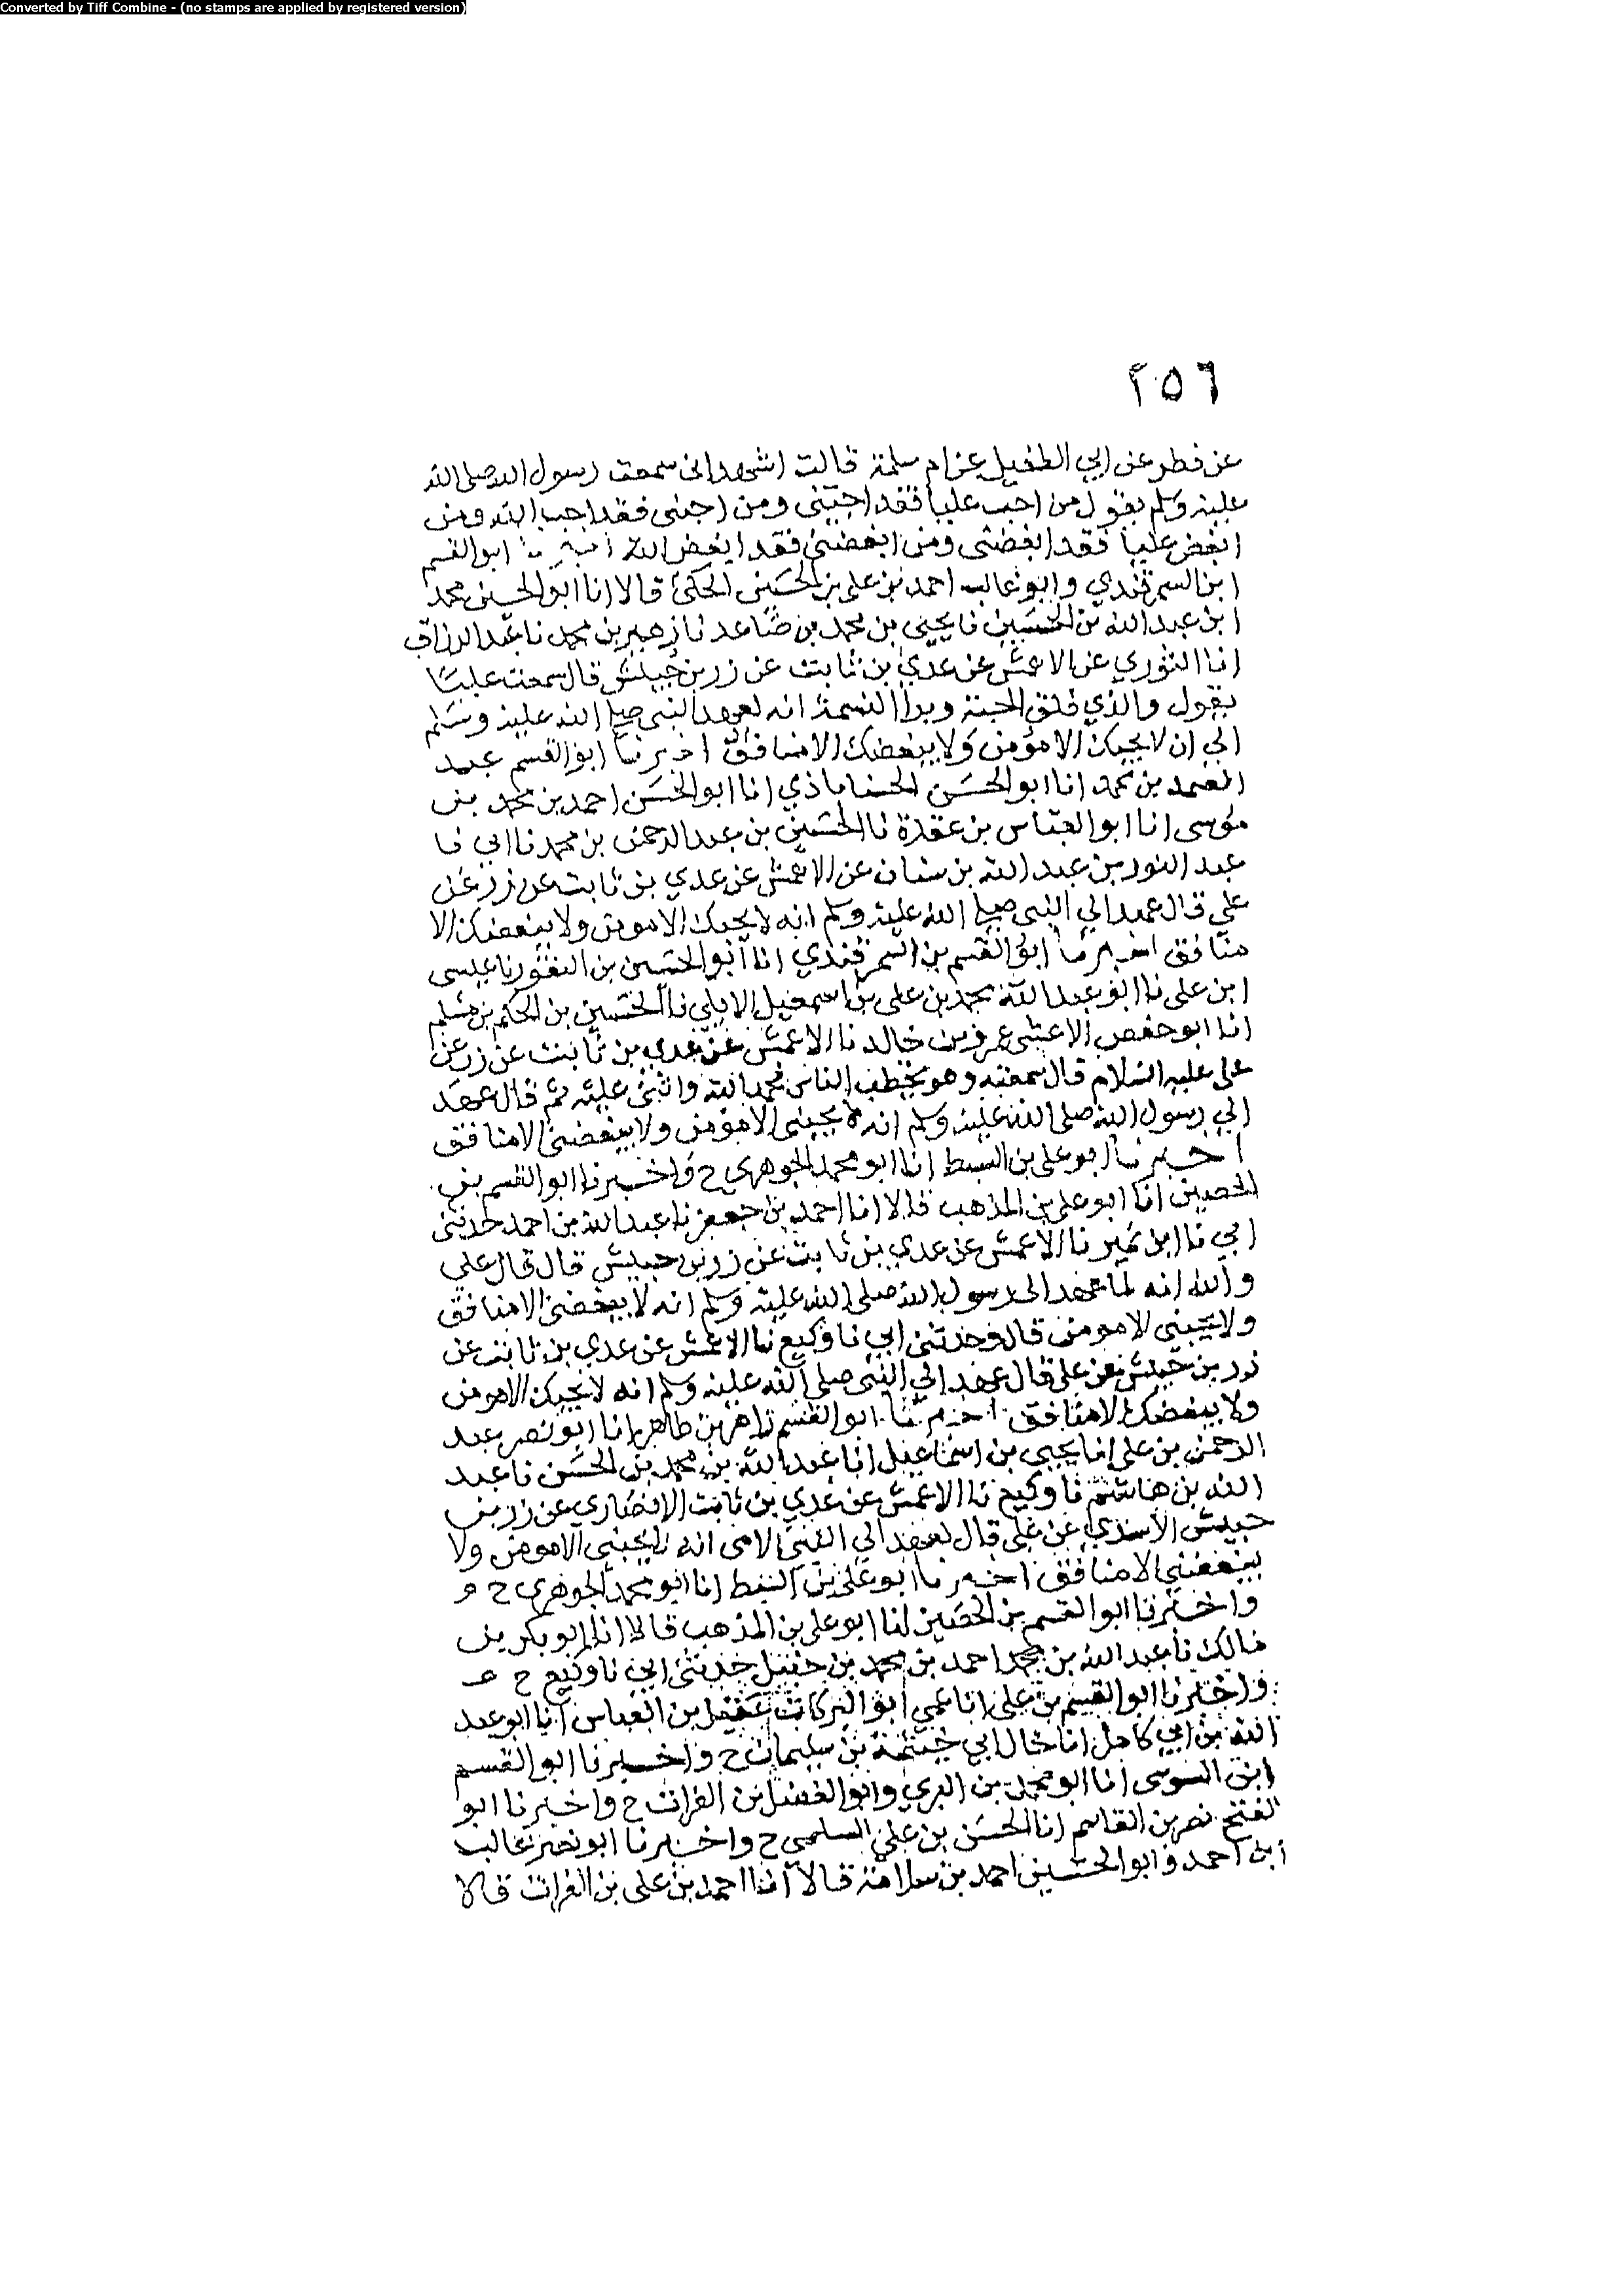 Converted by Tiff Combine - (no stamps are applied by registered version)
٢٥٦
عن فطر عن ابي الطفيل عن ام سلمة قالت اشهد اني سمعت رسول الله صلى الله
عليه وسلم يقول من احب عليا فقد احبني ومن احبني فقد احب الله ومن
ابغض عليا فقد ابغضني ومن ابغضني فقد ابغض الله ابو القسم
ابن السمرقندي وابو غالب احمد بن علي بن الحسين الحكي قالا انا ابو الحسين محمد
ابن عبد الله بن الحسين نا يحيى بن محمد بن صاعد نا زهير بن محمد نا عبد الرزاق
انا الثوري عن الاعمش عن عدي بن ثابت عن زر بن حبيش قال سمعت عليا
يقول والذي فلق الحبة وبرا النسمة انه لعهد النبي صلى الله عليه وسلم
الي ان لا يحبك الا مؤمن ولا يبغضك الا منافق اخبرنا ابو القسم عبد
الصمد بن محمد انا ابو الحسن الحسناباذي انا ابو الحسن احمد بن محمد بن
موسى انا ابو العباس بن عقدة نا الحسين بن عبد الرحمن بن محمد نا ابي نا
عبد النور بن عبد الله بن سنان عن الاعمش عن عدي بن ثابت عن زر عن
علي قال عهد الي النبي صلى الله عليه وسلم انه لا يحبك الا مومن ولا يبغضك الا
منافق اخبرنا ابو القسم بن السمرقندي انا ابو الحسين بن النقور نا عيسى
ابن علي نا ابو عبد الله محمد بن علي بن اسمعيل الايلي نا الحسين بن الحكم بن مسلم
انا ابو حفص الاعشى عمرو بن خالد نا الاعمش عن عدي بن ثابت عن زر عن
علي عليه السلام قال سمعته وهو يخطب الناس فحمد الله واثنى عليه ثم قال عهد
الي رسول الله صلى الله عليه وسلم انه لا يحبني الا مؤمن ولا يبغضني الا منافق
اخبرنا ابو علي بن السبط انا ابو محمد الجوهري ح واخبرنا ابو القسم بن
الحصين انا ابو علي بن المذهب قالا انا احمد بن جعفر نا عبد الله بن احمد حدثني
ابي نا ابن نمير نا الاعمش عن عدي بن ثابت عن زر بن حبيش قال قال علي
والله انه لما عهد الي رسول الله صلى الله عليه وسلم انه لا يبغضني الا منافق
ولا يحبني الا مومن قال وحدثني ابي نا وكيع نا الاعمش عن عدي بن ثابت عن
زر بن حبيش عن علي قال عهد الي النبي صلى الله عليه وسلم انه لا يحبك الا مومن
ولا يبغضك الا منافق اخبرنا ابو القسم زاهر بن طاهر انا ابو نصر عبد
الرحمن بن علي انا يحيى بن اسماعيل انا عبد الله بن محمد بن الحسن نا عبد
الله بن هاشم نا وكيع نا الاعمش عن عدي بن ثابت الانصاري عن زر بن
حبيش الاسدي عن علي قال لعهد الي النبي الامي انه لا يحبني الا مومن ولا
يبغضني الا منافق اخبرنا ابو علي بن السبط انا ابو محمد الجوهري ح
واخبرنا ابو القسم بن الحصين انا ابو علي بن المذهب قالا انا ابو بكر بن
مالك نا عبد الله بن احمد بن محمد بن حنبل حدثني ابي نا وكيع ح
واخبرنا ابو القسم بن علي انا عمي ابو البركات عقيل بن العباس انا ابو عبد
الله بن ابي كامل انا خال ابي خيثمة بن سليمان ح واخبرنا ابو القسم
ابن السوسي انا ابو محمد بن البري وابو الفضل بن الفرات ح واخبرنا ابو
الفتح نصر بن القاسم انا الحسن بن علي السلمي ح واخبرنا ابو نصر غالب
ابن احمد وابو الحسين احمد بن سلامة قالا انا احمد بن علي بن الفرات قالا